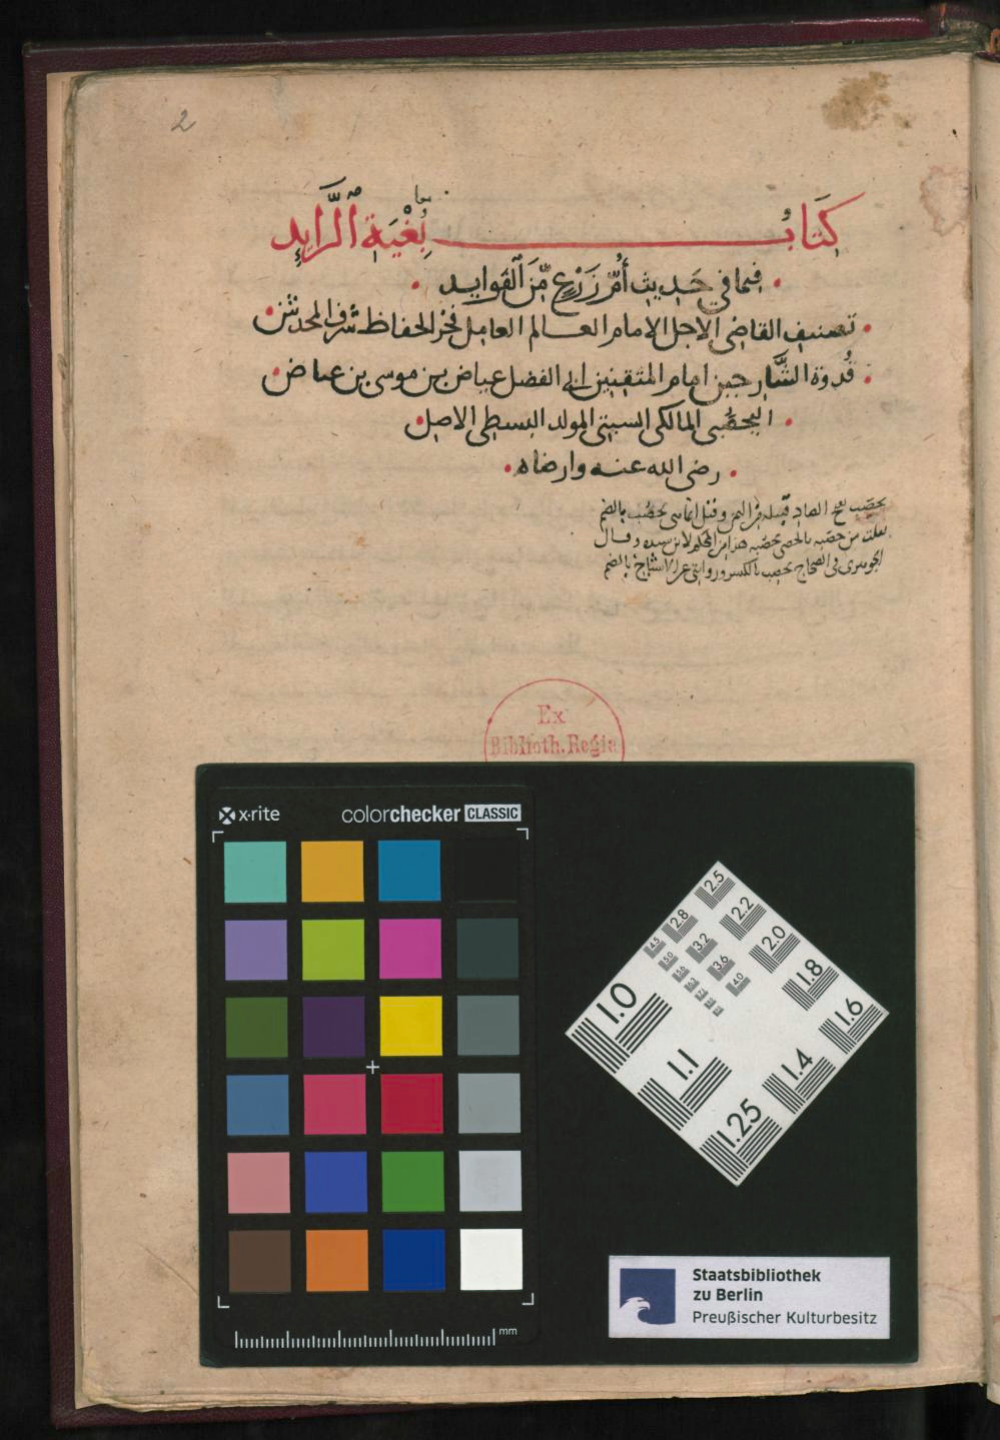 2
كتاب بُغْيَة الرَّايد
معا
فيما في حَديث أُمّ زَرْعٍ مِّنَ الفَوايد
تصنيف القاضى الاجل الامام العالم العامل فخر الحفاظ شرف المحدثين
قُدوة الشَّارحين امام المتقنين ابى الفضل عياض بن موسى بن عياض
اليحصُبى المالكى السبتى المولد البسطى الاصل
رضى الله عنه وارضاه
يحصَب بفتح الصاد قبيلة من اليمن وقيل انما هى يحصُب بالضم
نقلت من حصبه بالحصى يحصبه هذا من المحكم لابن سيده وقال
الجوهرى فى الصحاح يحصب بالكسر وروايتى عن الاشياخ بالضم
Ex
Biblioth. Regia
x-rite
colorchecker CLASSIC
2.5
2.8
2.2
4.5
3.2
2.0
5.0
3.6
1.8
4.0
1.0
1.6
1.1
1.4
1.25
mm
Staatsbibliothek
zu Berlin
Preußischer Kulturbesitz